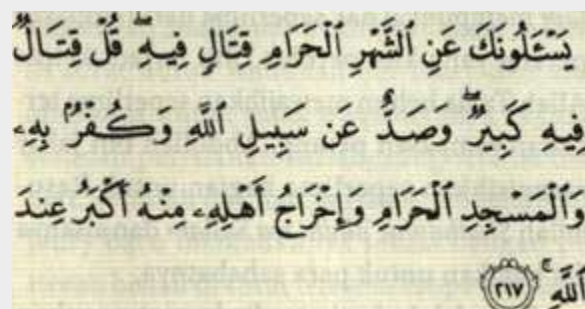 يَسْـَٔلُونَكَ عَنِ ٱلشَّهْرِ ٱلْحَرَامِ قِتَالٍ فِيهِ ۖ قُلْ قِتَالٌ
فِيهِ كَبِيرٌ ۖ وَصَدٌّ عَن سَبِيلِ ٱللَّهِ وَكُفْرٌۢ بِهِۦ
وَٱلْمَسْجِدِ ٱلْحَرَامِ وَإِخْرَاجُ أَهْلِهِۦ مِنْهُ أَكْبَرُ عِندَ
ٱللَّهِ ۚ ٢١٧